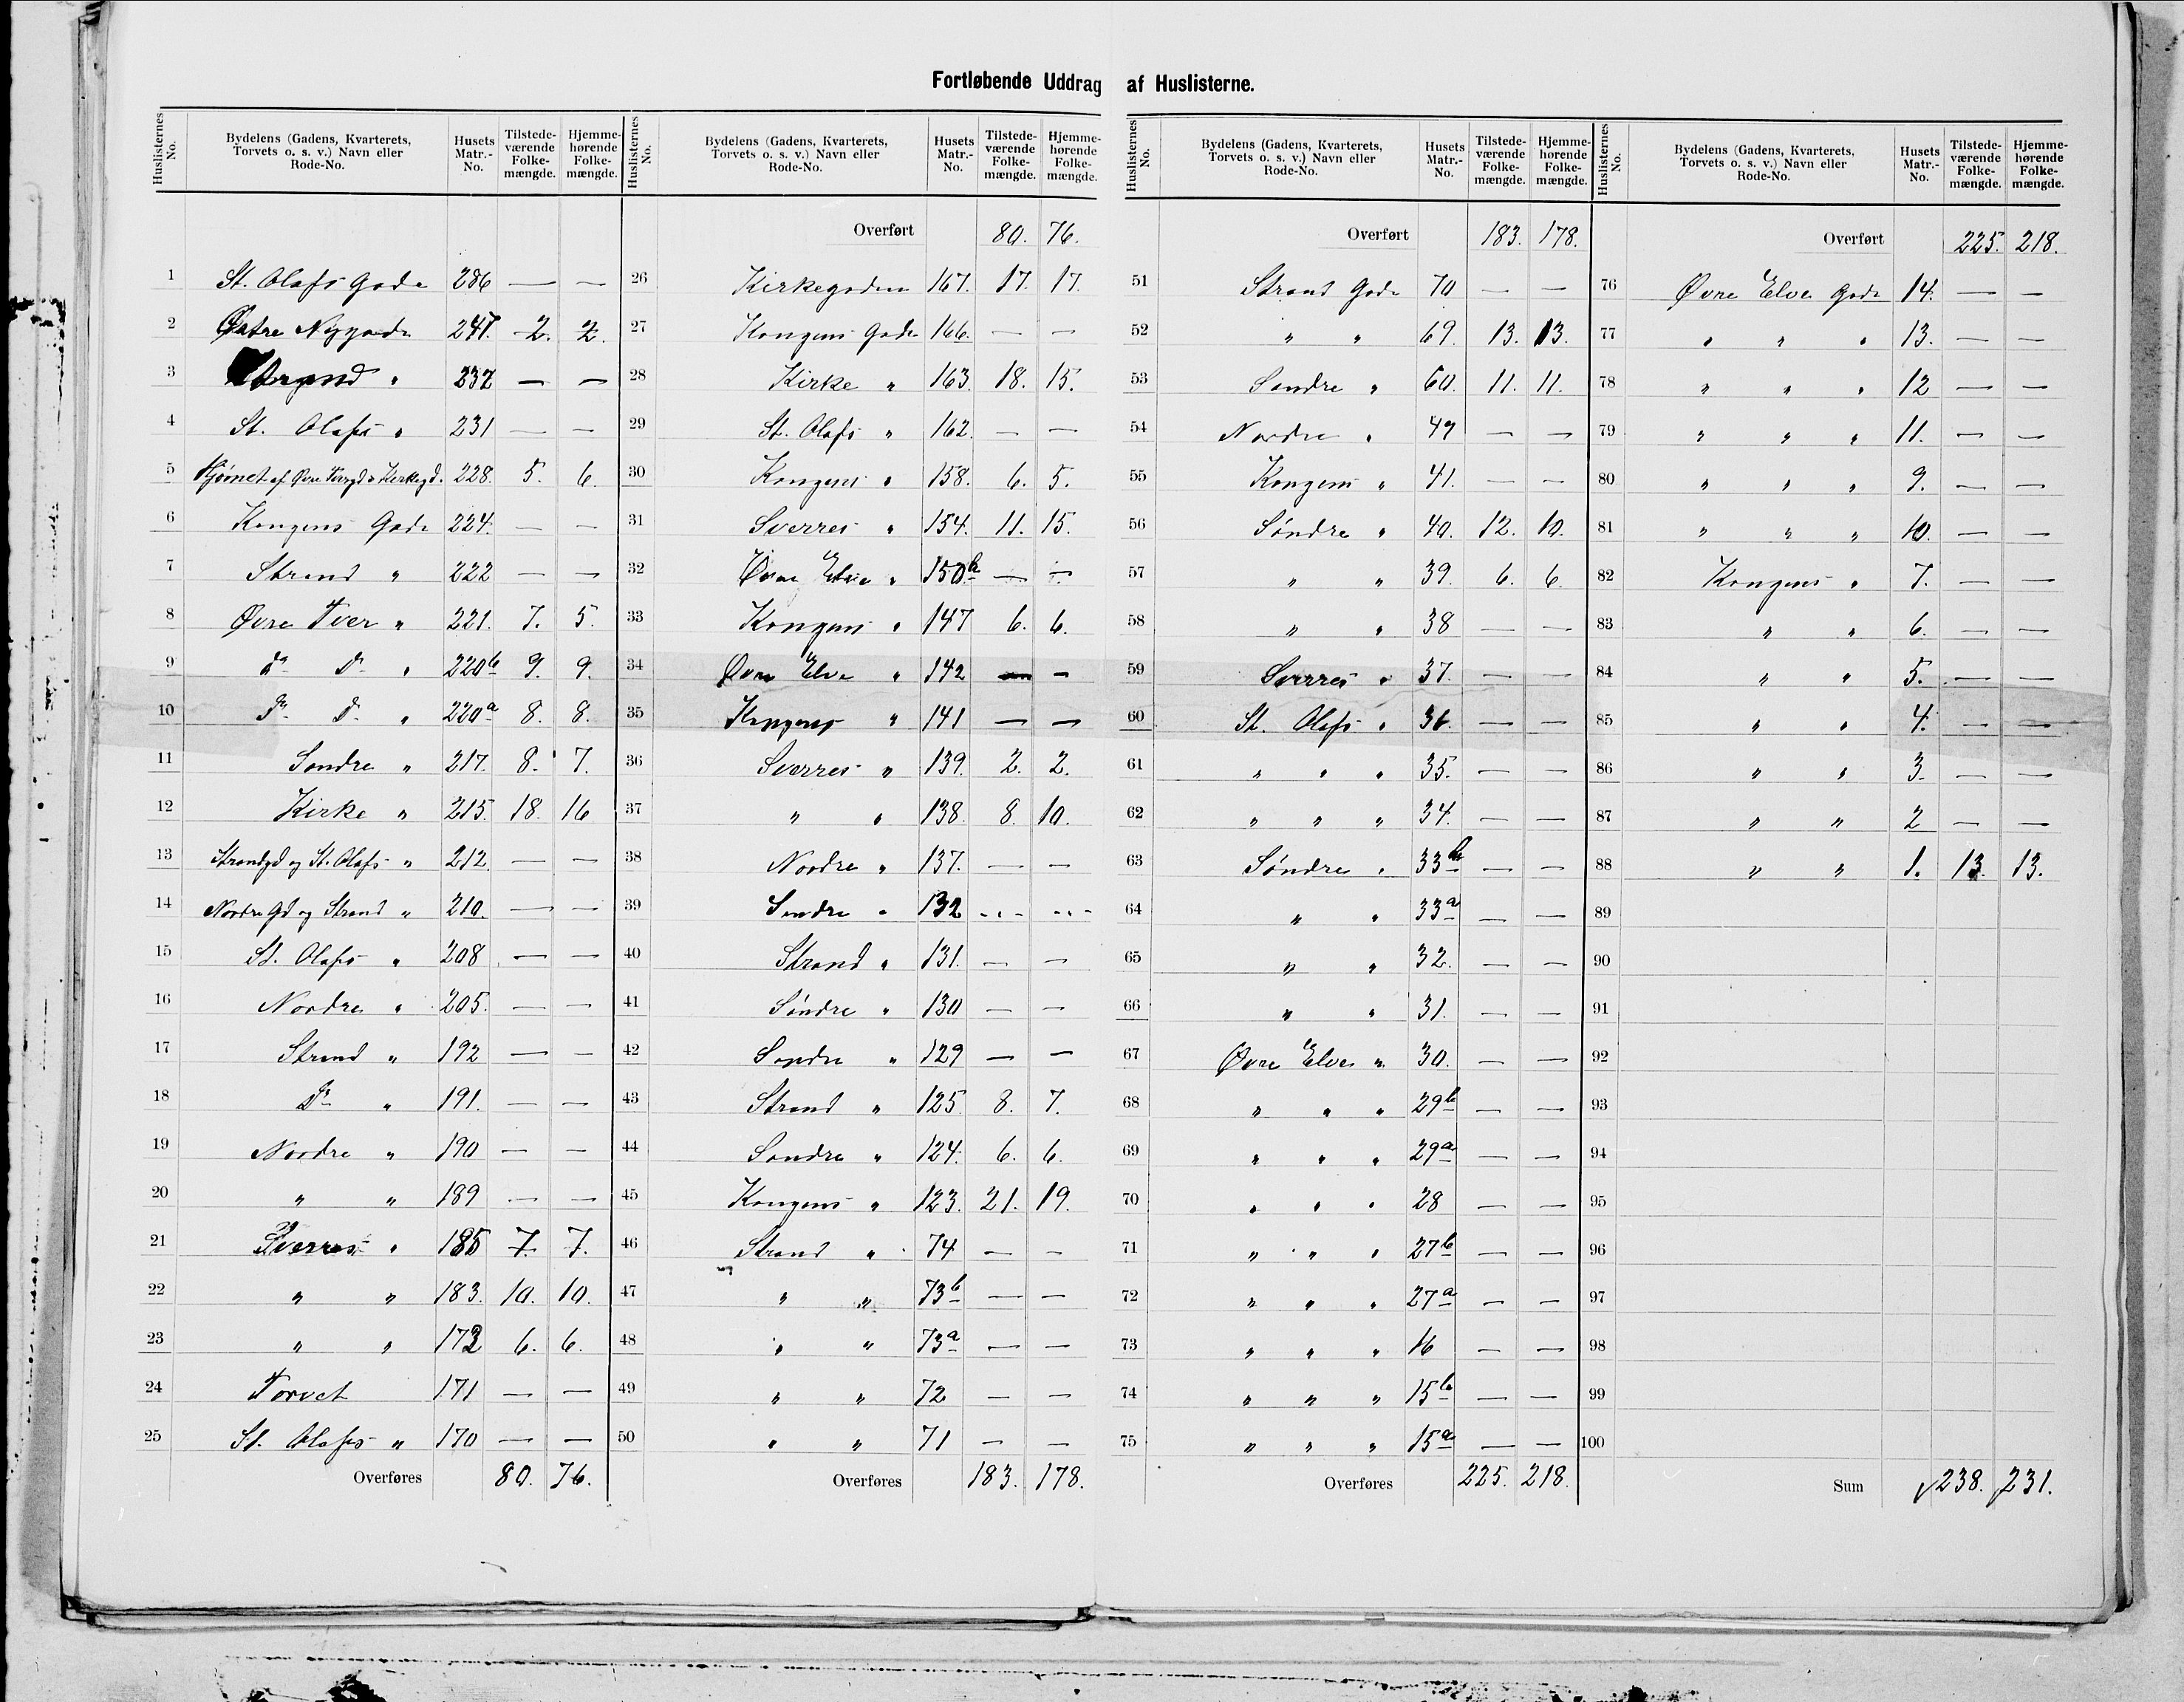 Fortløbende Uddrag af Huslisterne.
Huslisternes No. | Bydelens (Gadens, Kvarterets, Torvets o. s. v.) Navn eller Rode-No. | Husets Matr.-No. | Tilstede-værende Folke-mængde. | Hjemme-hørende Folke-mængde.
1 St. Olafs Gade 286 — —
2 Østre Nygade 247. 2. 2.
3 Strand " 232 — —
4 St. Olafs " 231 — —
5 Hjørnet af Øvre Tvergd & Kirkegd. 228. 5. 6.
6 Kongens Gade 224. — —
7 Strand " 222 — —
8 Øvre Tver " 221. 7. 5.
9 Do Do " 220b 9. 9.
10 Do Do " 220a 8. 8.
11 Søndre " 217. 8. 7.
12 Kirke " 215. 18. 16
13 Strandgd og St. Olafs " 212. — —
14 Nordre Gd og Strand " 210. — —
15 St. Olafs " 208 — —
16 Nordre " 205. — —
17 Strand " 192 — —
18 Do " 191. — —
19 Nordre " 190 — —
20 " " 189 — —
21 Sverres " 185 7. 7.
22 " " 183. 10. 10.
23 " " 173 6. 6.
24 Torvet 171 — —
25 St. Olafs " 170 — —
Overføres 80. 76.
Huslisternes No. | Bydelens (Gadens, Kvarterets, Torvets o. s. v.) Navn eller Rode-No. | Husets Matr.-No. | Tilstede-værende Folke-mængde. | Hjemme-hørende Folke-mængde.
Overført 80. 76.
26 Kirkegaden 167. 17. 17.
27 Kongens Gade 166. — —
28 Kirke " 163. 18. 15.
29 St. Olafs " 162. — —
30 Kongens " 158. 6. 5.
31 Sverres " 154. 11. 15.
32 Øvre Elve " 150b — —
33 Kongens " 147 6. 6.
34 Øvre Elve " 142 — —
35 Kongens " 141 — —
36 Sverres " 139. 2. 2.
37 " " 138. 8. 10.
38 Nordre " 137. — —
39 Søndre " 132 — —
40 Strand " 131. — —
41 Søndre " 130 — —
42 Søndre " 129 — —
43 Strand " 125. 8. 7.
44 Søndre " 124. 6. 6.
45 Kongens " 123. 21. 19.
46 Strand " 74 — —
47 " " 73b — —
48 " " 73a — —
49 " " 72 — —
50 " " 71 — —
Overføres 183. 178.
Huslisternes No. | Bydelens (Gadens, Kvarterets, Torvets o. s. v.) Navn eller Rode-No. | Husets Matr.-No. | Tilstede-værende Folke-mængde. | Hjemme-hørende Folke-mængde.
Overført 183. 178.
51 Strand Gade 70 — —
52 " " 69. 13. 13.
53 Søndre " 60. 11. 11.
54 Nordre " 49 — —
55 Kongens " 41. — —
56 Søndre " 40. 12. 10.
57 " " 39. 6. 6.
58 " " 38 — —
59 Sverres " 37. — —
60 St. Olafs " 36. — —
61 " " " 35. — —
62 " " " 34. — —
63 Søndre " 33b — —
64 " " 33a — —
65 " " 32. — —
66 " " 31. — —
67 Øvre Elve " 30. — —
68 " " " 29b — —
69 " " " 29a — —
70 " " " 28 — —
71 " " " 27b — —
72 " " " 27a — —
73 " " " 16 — —
74 " " " 15b — —
75 " " " 15a — —
Overføres 225. 218.
Huslisternes No. | Bydelens (Gadens, Kvarterets, Torvets o. s. v.) Navn eller Rode-No. | Husets Matr.-No. | Tilstede-værende Folke-mængde. | Hjemme-hørende Folke-mængde.
Overført 225. 218.
76 Øvre Elve Gade 14. — —
77 " " " 13. — —
78 " " " 12 — —
79 " " " 11. — —
80 " " " 9. — —
81 " " " 10. — —
82 Kongens " 7. — —
83 " " 6. — —
84 " " 5. — —
85 " " 4. — —
86 " " 3. — —
87 " " 2 — —
88 " " 1. 13. 13.
89
90
91
92
93
94
95
96
97
98
99
100
Sum 238. 231.